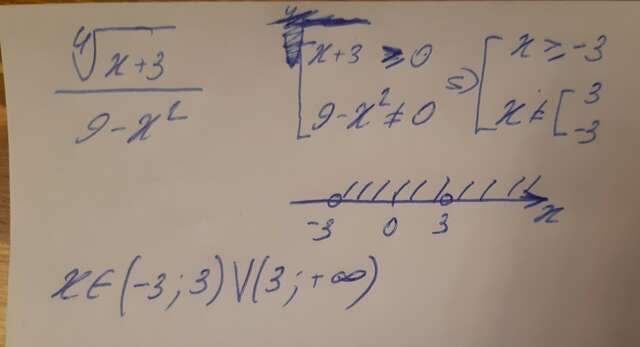 ⁴√(x+3) / (9-x²)
[ x+3 ≥ 0 ⇔ [ x ≥ -3
[ 9-x² ≠ 0 [ x ≠ [ 3 -3
-3 0 3 x
x∈(-3; 3)∪(3; +∞)